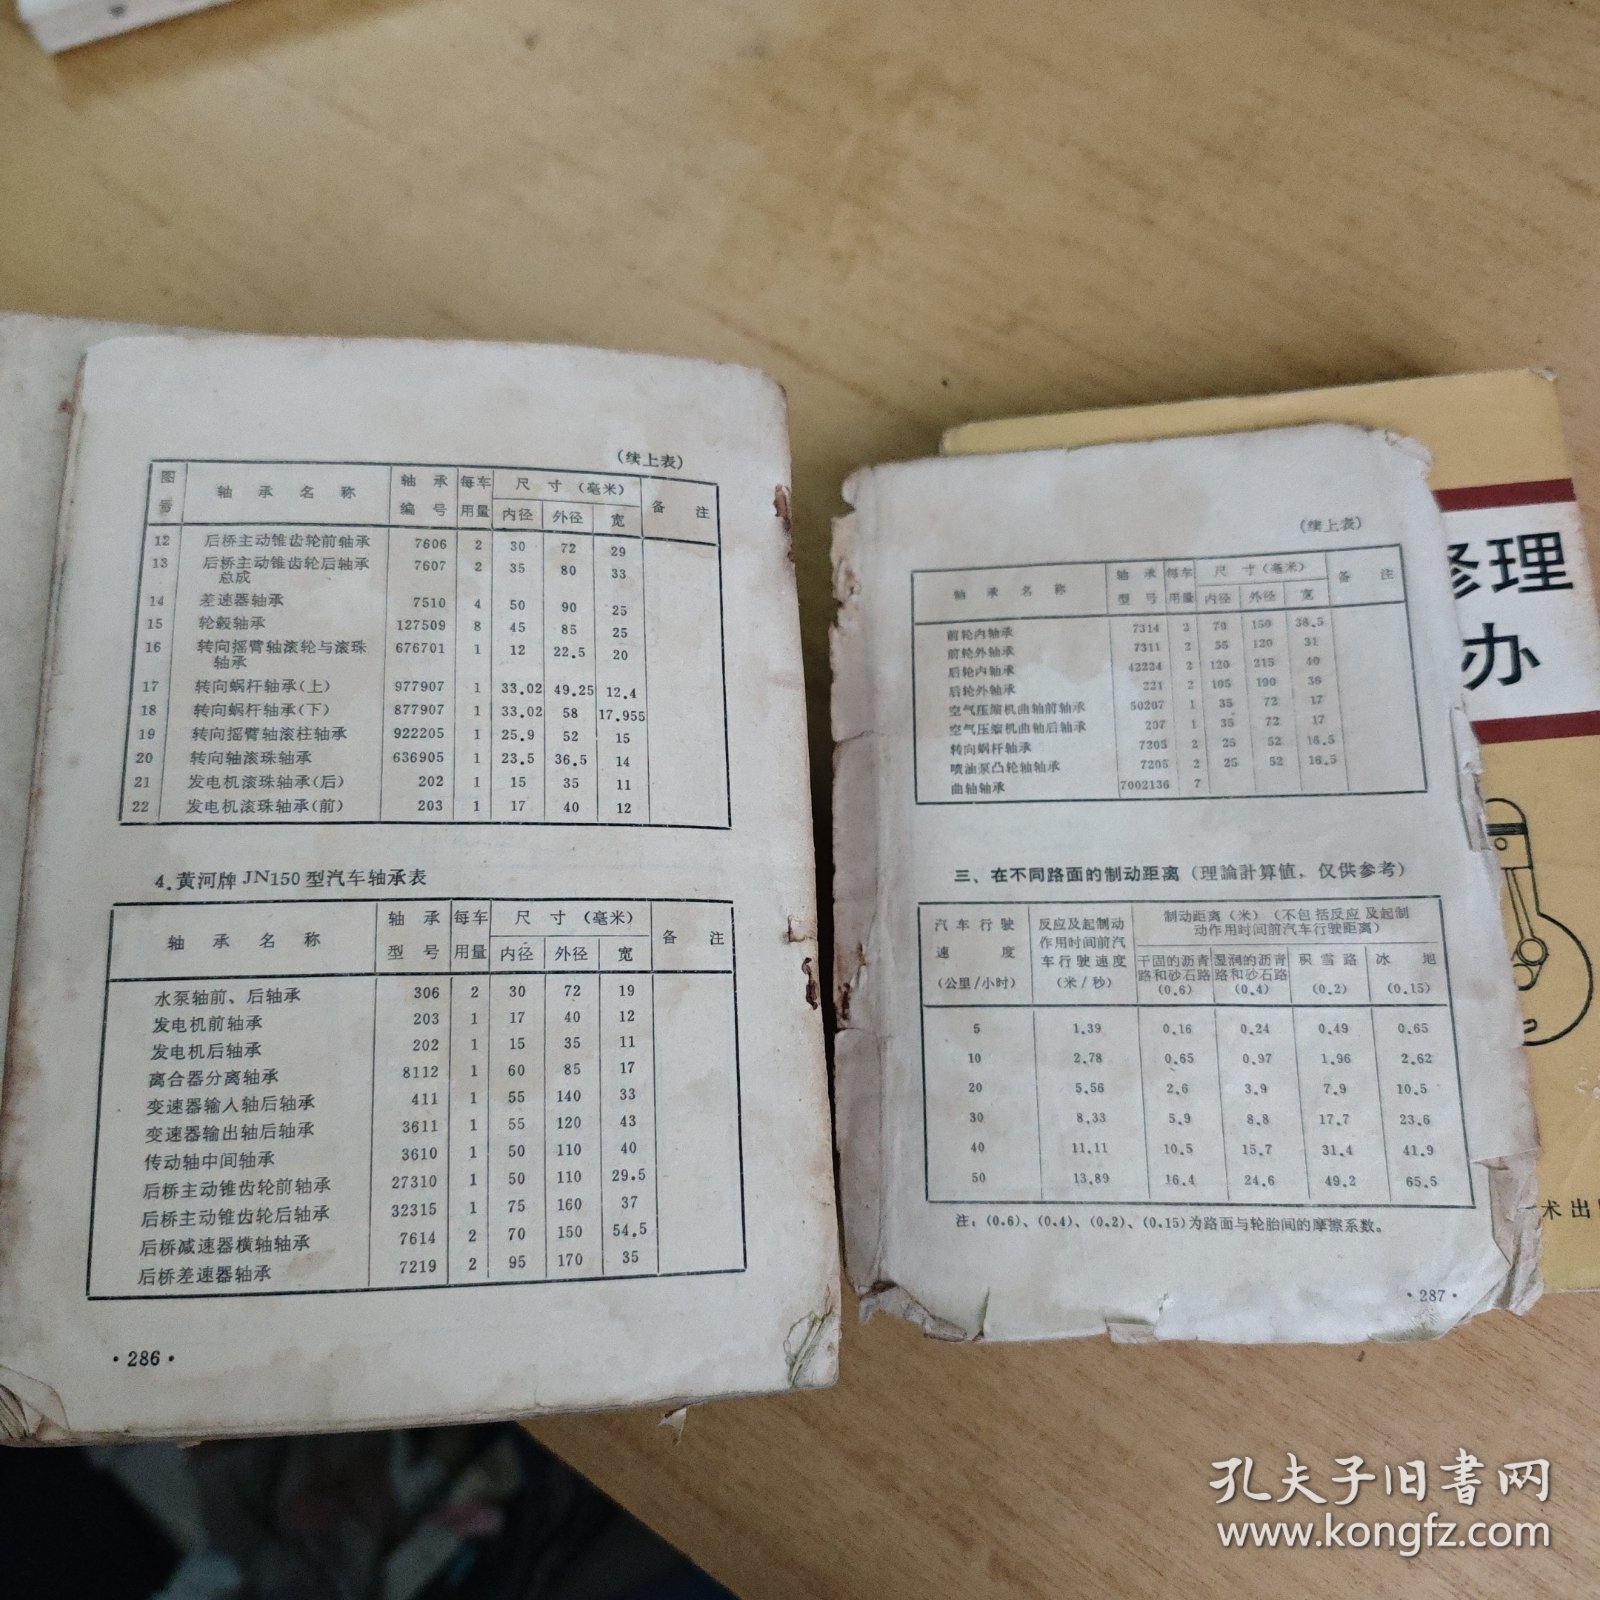 (续上表)
图号 轴承名称 轴承编号 每车用量 尺寸(毫米) 内径 外径 宽 备注
12 后桥主动锥齿轮前轴承 7606 2 30 72 29
13 后桥主动锥齿轮后轴承总成 7607 2 35 80 33
14 差速器轴承 7510 4 50 90 25
15 轮毂轴承 127509 8 45 85 25
16 转向摇臂轴滚轮与滚珠轴承 676701 1 12 22.5 20
17 转向蜗杆轴承(上) 977907 1 33.02 49.25 12.4
18 转向蜗杆轴承(下) 877907 1 33.02 58 17.955
19 转向摇臂轴滚柱轴承 922205 1 25.9 52 15
20 转向轴滚珠轴承 636905 1 23.5 36.5 14
21 发电机滚珠轴承(后) 202 1 15 35 11
22 发电机滚珠轴承(前) 203 1 17 40 12
4.黄河牌 JN150 型汽车轴承表
轴承名称 轴承型号 每车用量 尺寸(毫米) 内径 外径 宽 备注
水泵轴前、后轴承 306 2 30 72 19
发电机前轴承 203 1 17 40 12
发电机后轴承 202 1 15 35 11
离合器分离轴承 8112 1 60 85 17
变速器输入轴后轴承 411 1 55 140 33
变速器输出轴后轴承 3611 1 55 120 43
传动轴中间轴承 3610 1 50 110 40
后桥主动锥齿轮前轴承 27310 1 50 110 29.5
后桥主动锥齿轮后轴承 32315 1 75 160 37
后桥减速器横轴轴承 7614 2 70 150 54.5
后桥差速器轴承 7219 2 95 170 35
·286·
(续上表)
轴承名称 轴承型号 每车用量 尺寸(毫米) 内径 外径 宽 备注
前轮内轴承 7314 2 70 150 38.5
前轮外轴承 7311 2 55 120 31
后轮内轴承 42224 2 120 215 40
后轮外轴承 221 2 105 190 36
空气压缩机曲轴前轴承 50207 1 35 72 17
空气压缩机曲轴后轴承 207 1 35 72 17
转向蜗杆轴承 7205 2 25 52 16.5
喷油泵凸轮轴轴承 7205 2 25 52 16.5
曲轴轴承 7002136 7
三、在不同路面的制动距离(理論計算值,仅供参考)
汽车行驶速度(公里/小时) 反应及起制动作用时间前汽车行驶速度(米/秒) 制动距离(米)(不包括反应及起制动作用时间前汽车行驶距离)
干固的沥青路和砂石路(0.6) 湿润的沥青路和砂石路(0.4) 雪路(0.2) 冰地(0.15)
5 1.39 0.16 0.24 0.49 0.65
10 2.78 0.65 0.97 1.96 2.62
20 5.56 2.6 3.9 7.9 10.5
30 8.33 5.9 8.8 17.7 23.6
40 11.11 10.5 15.7 31.4 41.9
50 13.89 16.4 24.6 49.2 65.5
注:(0.6)、(0.4)、(0.2)、(0.15)为路面与轮胎间的摩擦系数。
·287·
修理
办
术出
孔夫子旧书网
www.kongfz.com